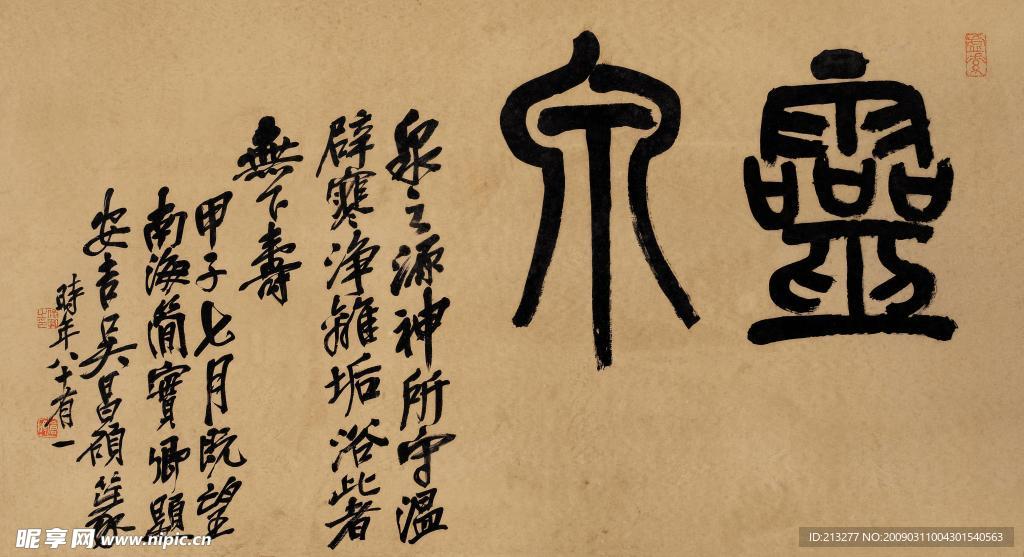 靈泉
泉之源神所守溫
辟寒淨離垢浴此者
無下壽
甲子七月既望
南海簡寶卿題
安吉吳昌碩篆
時年八十有一
昵享网 www.nipic.cn
ID:213277 NO:20090311004301540563